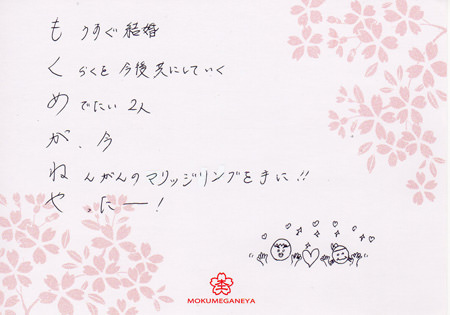 も うすぐ結婚
く らくを今後共にしていく
め でたい2人
が、今
ね んがんのマリッジリングを手に!!
や ったー!
杢
MOKUMEGANEYA